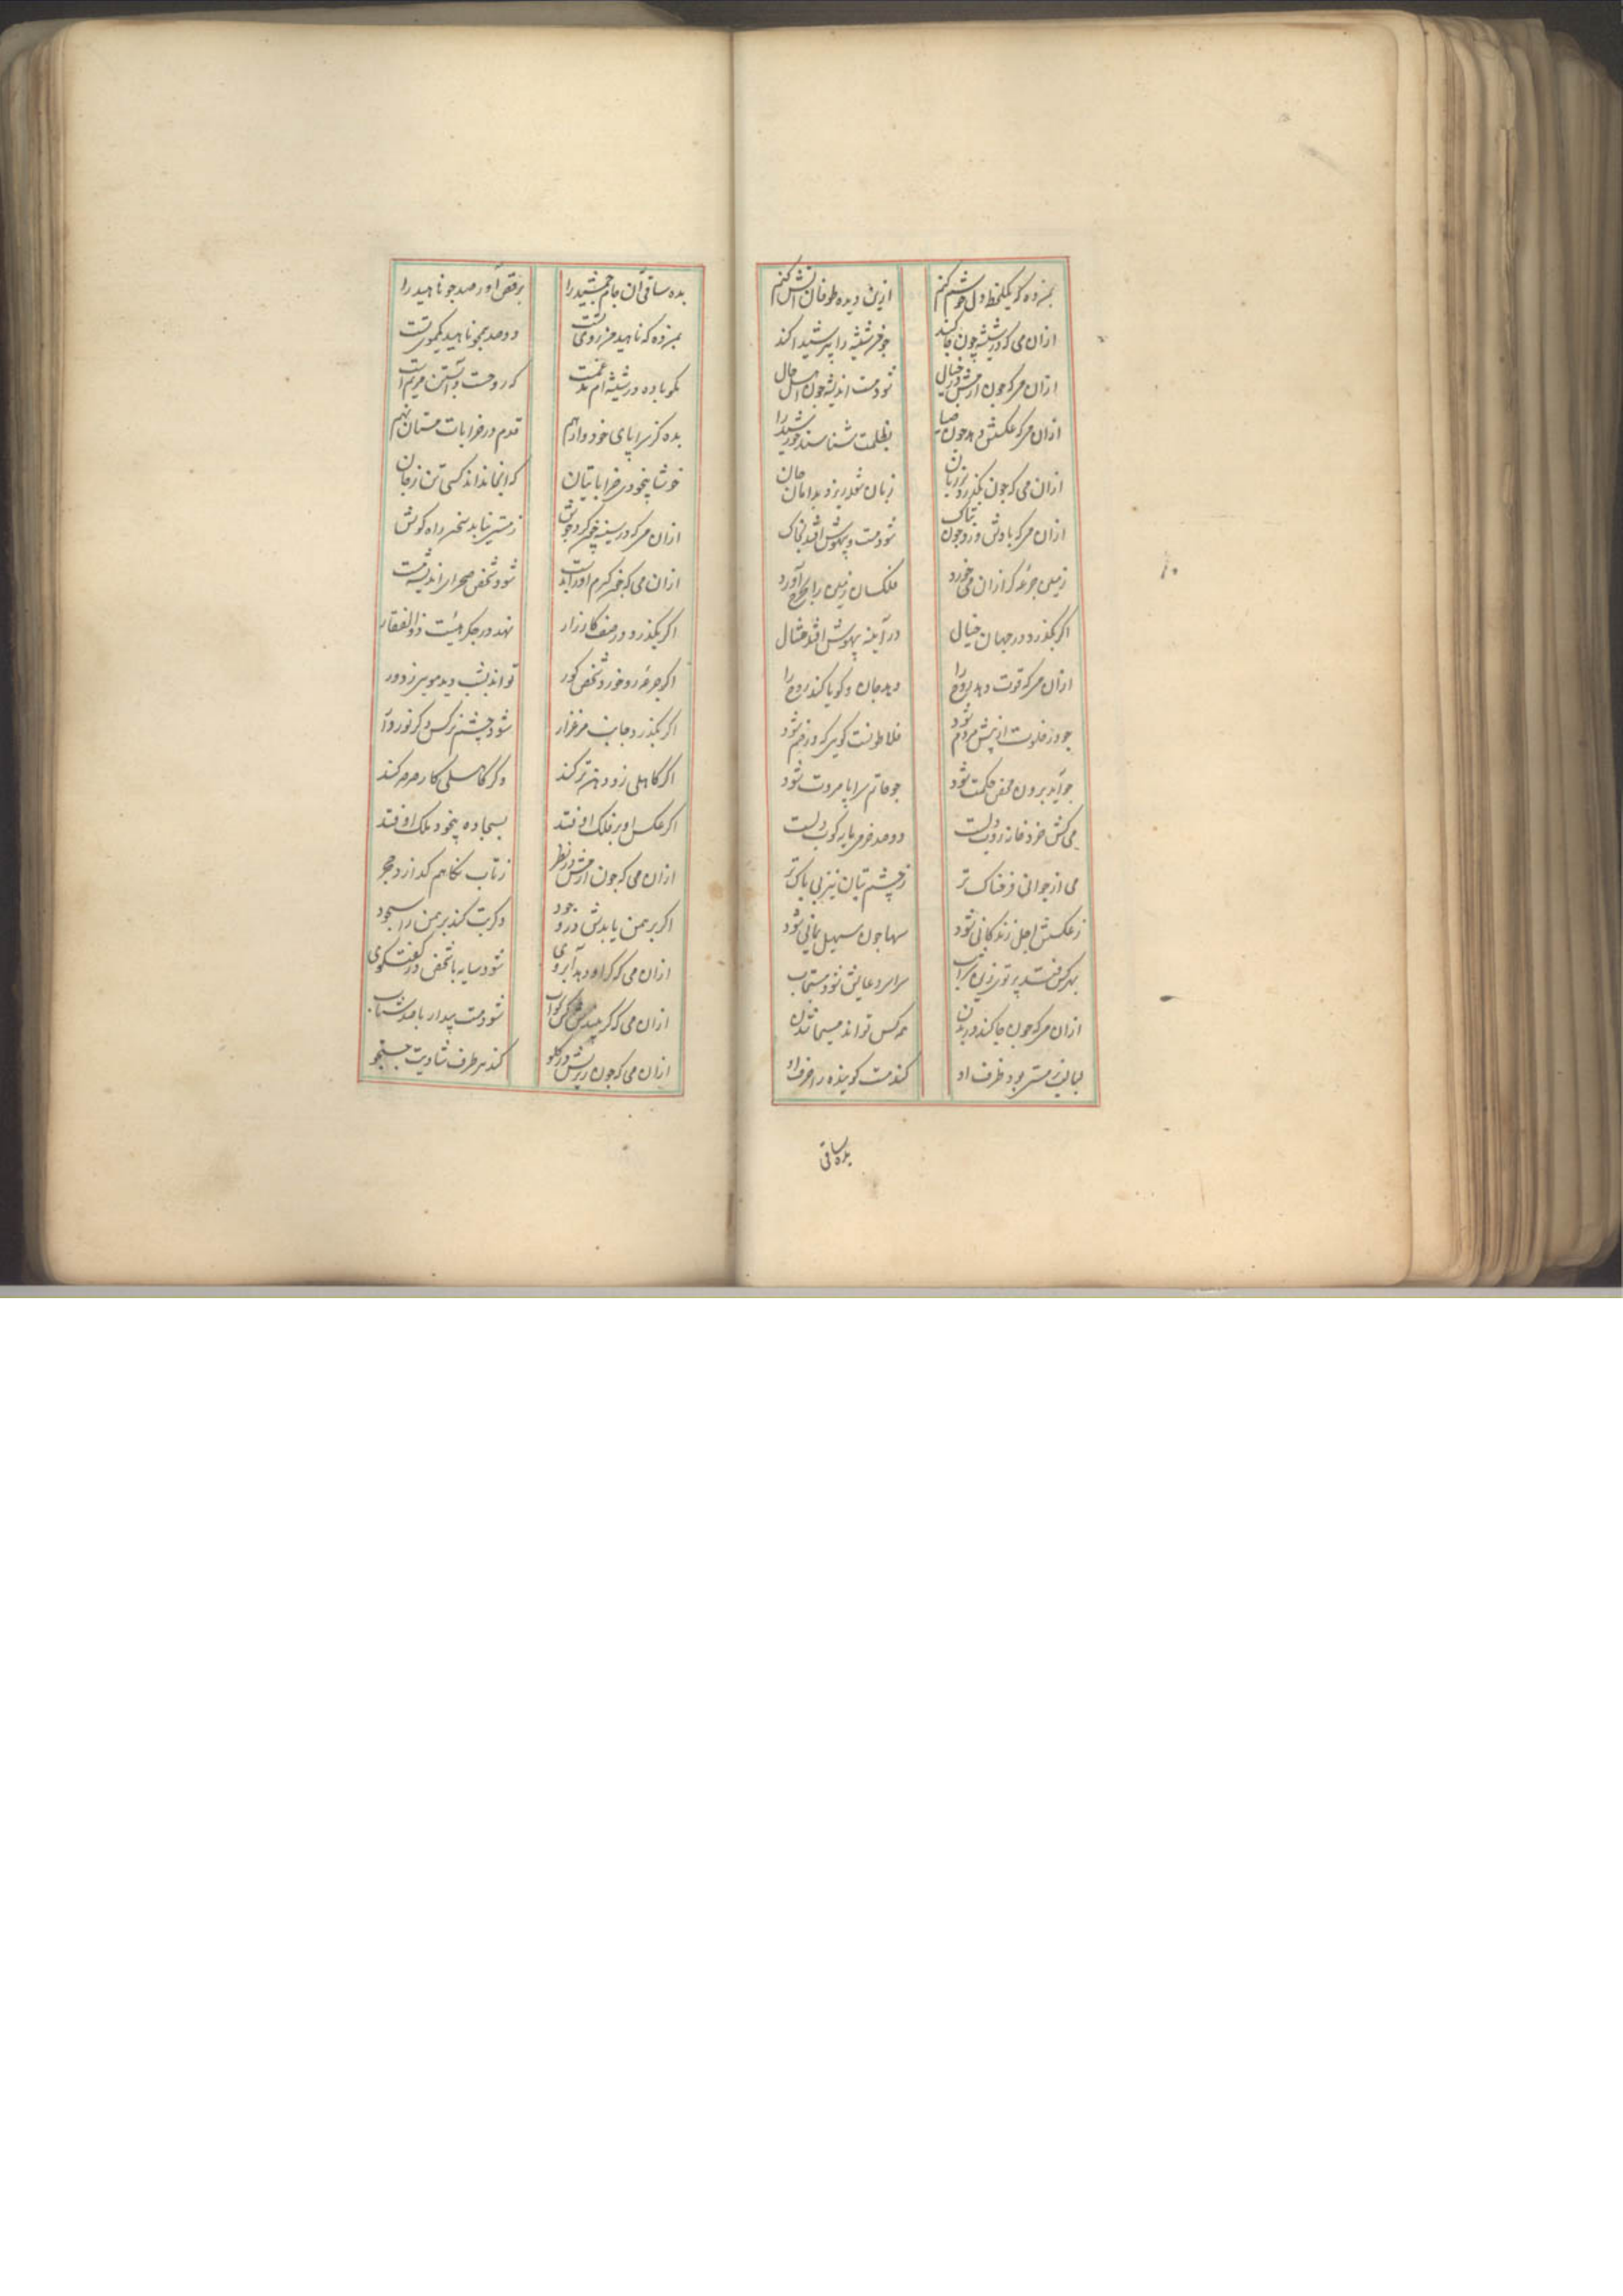 بمن ده که یکلحظه دل خوش کنم ازین دیده طوفان آتش کنم
ازان می که در شیشه چون جا کند جو خر شیشه را پر شیدا کند
ازان می که چون آرمش در خیال شود مست اندیشه چون اهل حال
ازان می که عکسش دهد چون ضیا بظلمت شناسند خورشید را
ازان می که چون بگذرد بر زبان زبان شعله ریزد بدامان جان
ازان می که بادش وزد چون بتاک شود مست و بیهوش افتد بخاک
زمین جرعه کر ازان می خورد فلکسان زمین را بچرخ آورد
اکر بگذرد در جهان خیال در آینه بیهوش افتد مثال
ازان می که قوت دهد روح را دهد جان و کویا کند روح را
جو در خلوت از پیش مردم شود فلاطونست کویی که در خم شود
جو آید برون محض حکمت شود جو حاتم سراپا مروت شود
می کش خرد خانه روب دلست دو صد خرمی پایه کوب دلست
می از جوانی فرحناک تر ز چشم بتان نیز بی باک تر
ز عکسش اجل زندگانی شود سها چون سهیل یمانی شود
بهر کس فتد پرتو زین شراب سراسر دعایش شود مستجاب
ازان می که چون جا کند در بدن همه کس تواند مسیحا شدن
لبالب ز مستی بود ظرف او کند مست کوینده را حرف او
بده ساقی
بده ساقی آن جام جمشید را برقص آور صد جو ناهید را
بمن ده که ناهید من روی تست دو صد همچو ناهید یکموی تست
مکو باده در شیشه ام مدغمست که روحست و آبستن مریم است
بده کز سراپای خود وارهم قدم در خرابات مستان نهم
خوشا بیخودی خراباتیان که آنجا نداند کسی تن ز جان
ازان می که در سینه خم کرد جوش ز مستی نیابد سخن راه کوش
ازان می که بخم کرم اوراندست شود شخص صحرای اندیشه مست
اکر بگذرد در صف کارزار نهد در جکر هیئت ذوالفقار
اکر جرعه زو خورد شخص کور تواند بشب دید موسی ز دور
اکر بگذرد جانب مرغزار شود چشم نرکس دکر نوردار
اکر کاهلی زو دهن تر کند دکر کاهلی کار صرصر کند
اکر عکس او بر فلک افتد بسجاده بیخود ملک اوفتد
ازان می که چون آرمش در نظر ز تاب نکاهم کدازد حجر
اکر برهمن یابدش در وجود دکر بت کند برهمن را سجود
ازان می که کر او دهد آبروی شود سایه با شخص در کفت کوی
ازان می که کر بیندش کس بخواب شود مست بیدار با صد شتاب
ازان می که چون ریزیش در کلو کند هر طرف شادیت جستجو